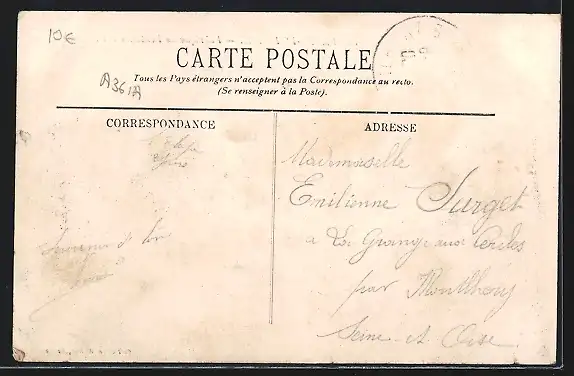 10€
CARTE POSTALE
A361A
Tous les Pays étrangers n'acceptent pas la Correspondance au recto.
(Se renseigner à la Poste).
CORRESPONDANCE
ADRESSE
Mademoiselle
Emilienne Surget
a La Grange aux Cercles
par Montlhery
Seine et Oise
Souvenir d'